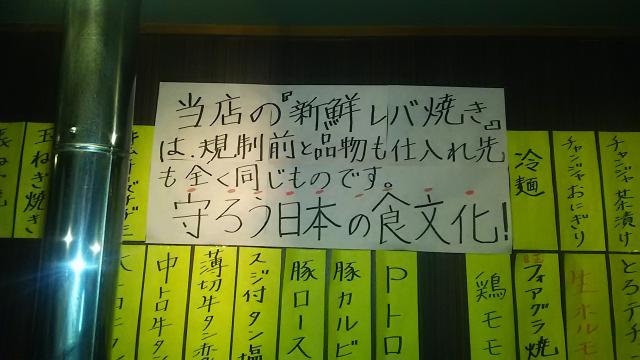 当店の『新鮮レバ焼き』
は、規制前と品物も仕入れ先
も全く同じものです。
守ろう日本の食文化!
チャンジャ茶漬け
チャンジャおにぎり
冷麺
玉ねぎ焼き
とろテチ
生ホルモ
フォアグラ焼
鶏モモ
Pトロ
豚カルビ
豚ロース
スジ付タン塩
薄切牛タン
中トロ牛タン